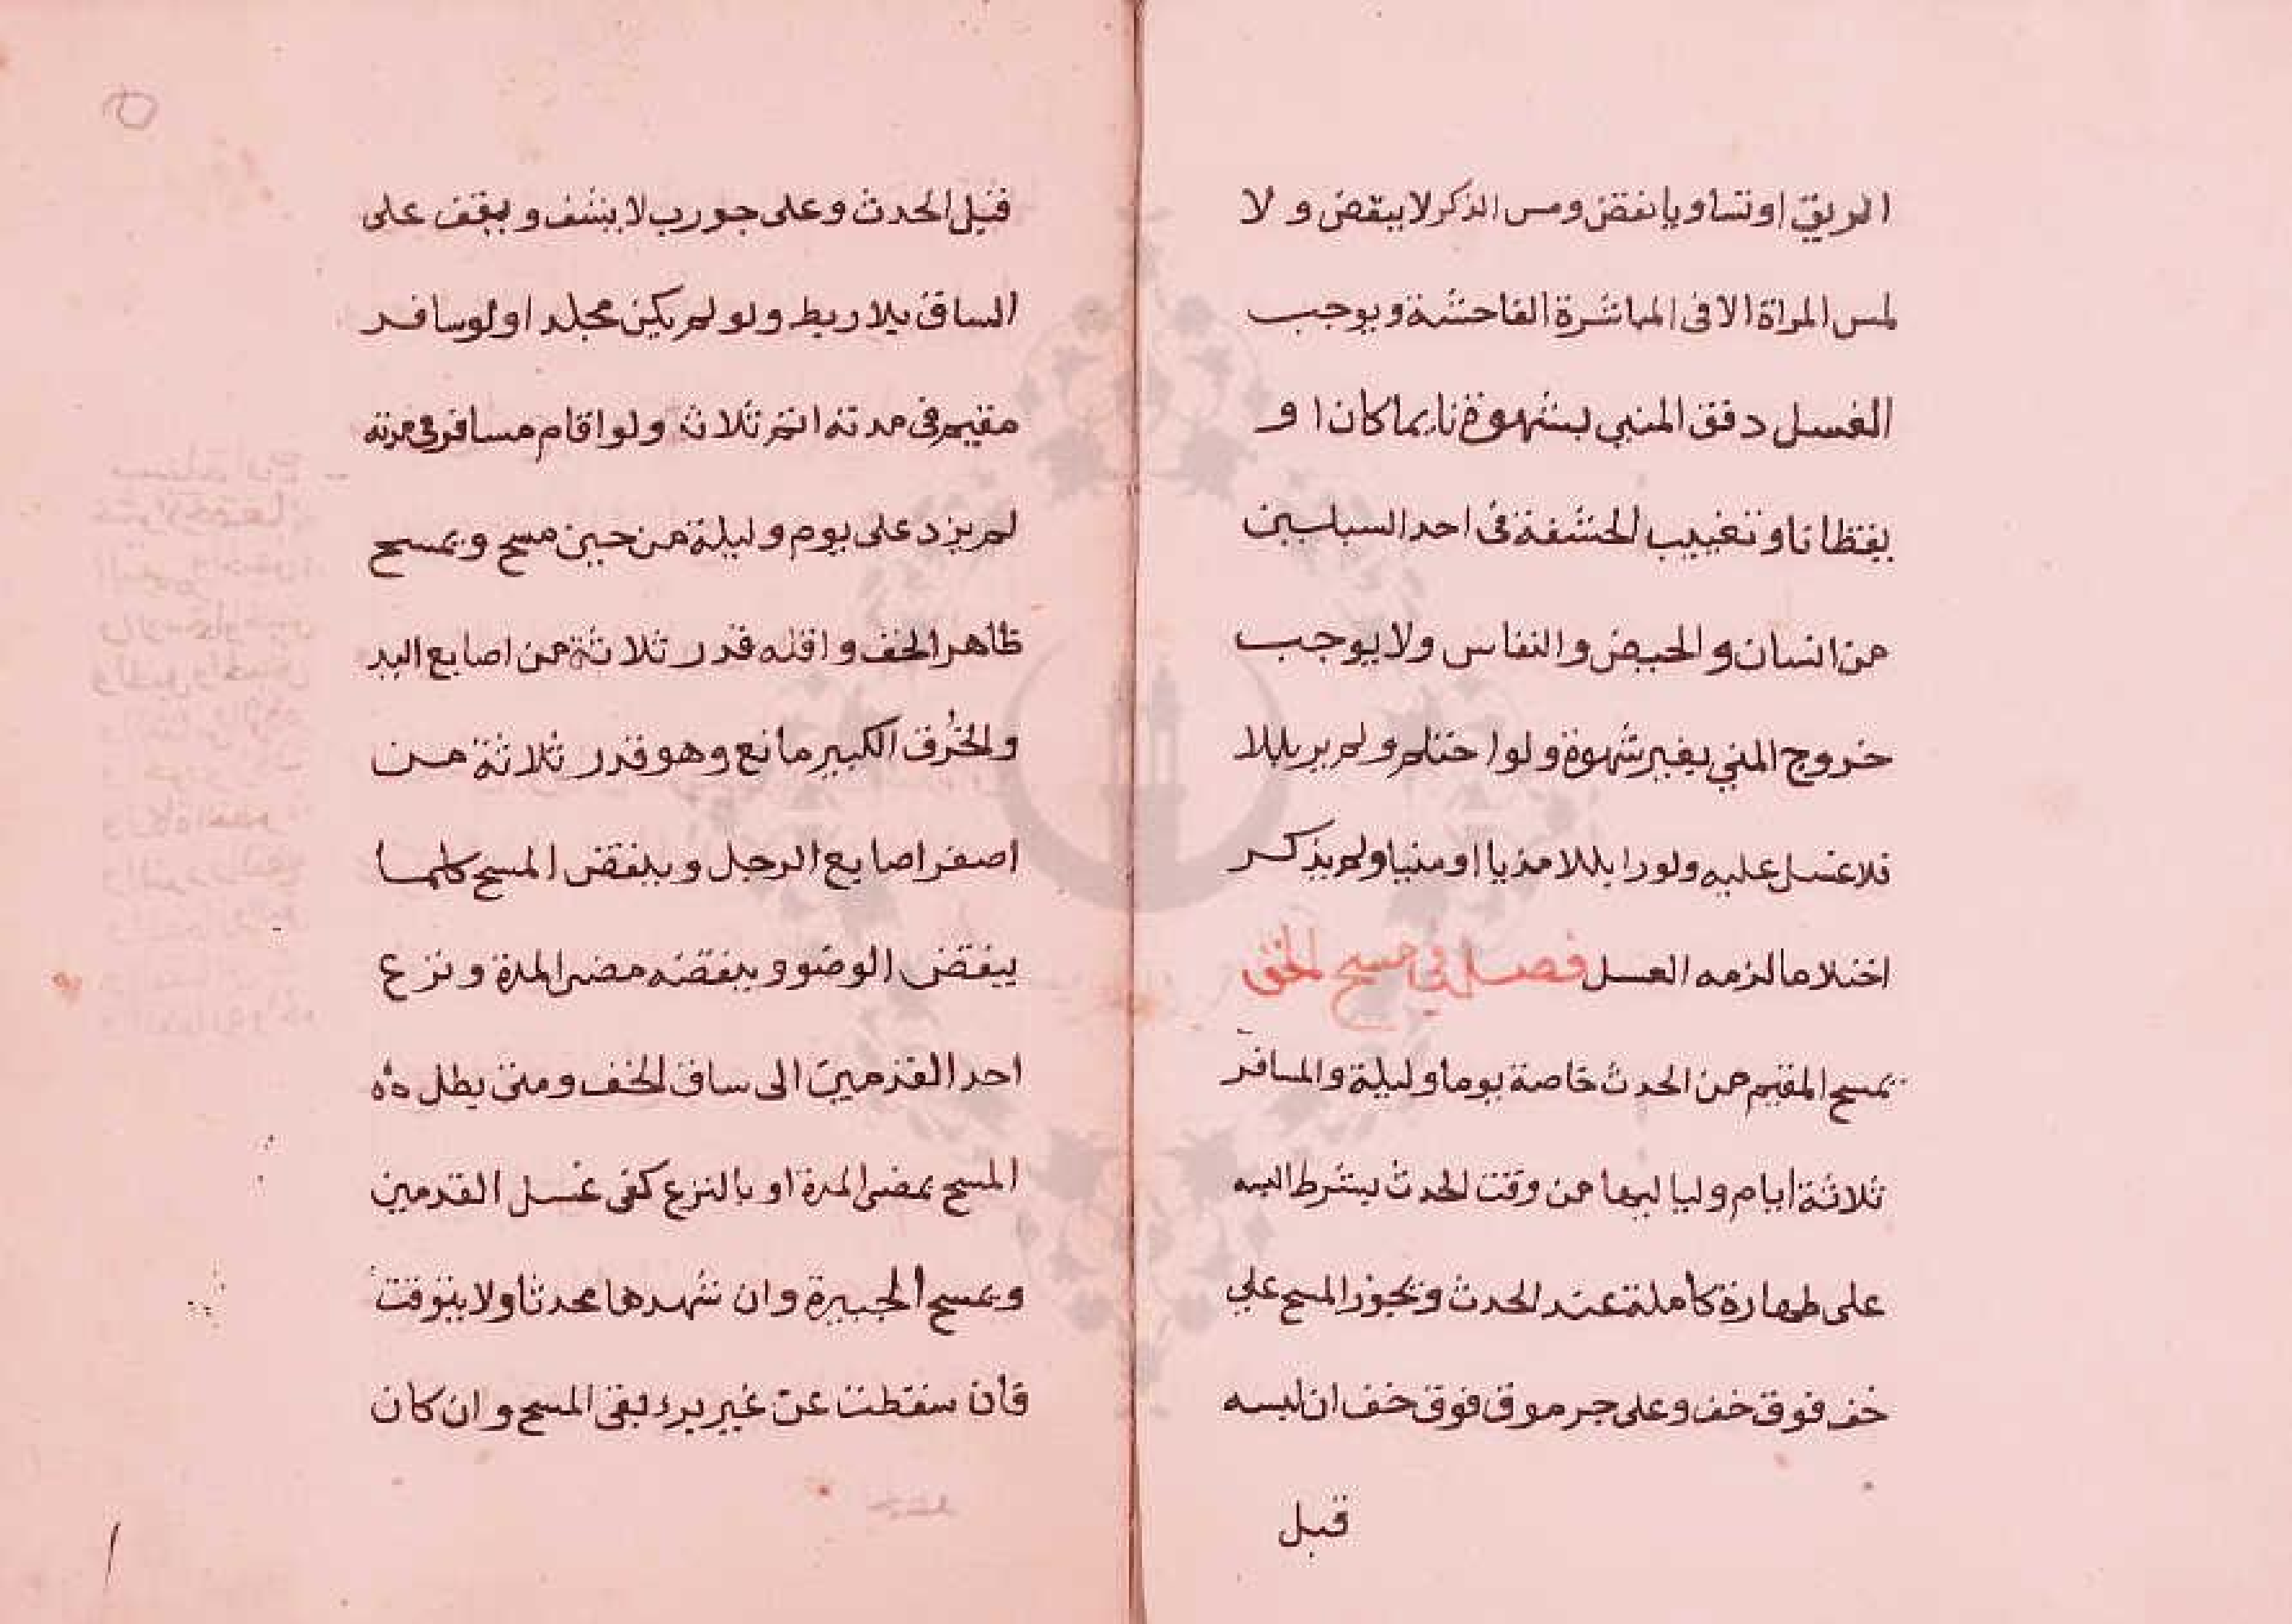 الريق او تساويا نقض ومس الذكر لا ينقض و لا
لمس المراة الا فى المباشرة الفاحشة ويوجب
الغسل دفق المني بشهوة نايما كان او
يقظانا وتغييب الحشفة فى احد السبيلين
من انسان والحيض والنفاس ولا يوجب
خروج المني بغير شهوة ولو احتلم ولم ير بللا
فلا غسل عليه ولو را بللا مذيا او منيا ولم يذكر
احتلاما لزمه الغسل فصل في مسح الخف
يمسح المقيم من الحدث خاصة يوما وليلة والمسافر
ثلاثة ايام ولياليها من وقت الحدث بشرط لبسه
على طهارة كاملة عند الحدث ويجوز المسح علي
خف فوق خف وعلى جرموق فوق خف ان لبسه
قبل
قبل الحدث وعلى جورب لا ينشف ويقف على
الساق بلا ربط ولو لم يكن مجلد او لو سافر
مقيم فى مدته اتم ثلاث ولو اقام مسافر فى مدته
لم يزد على يوم وليلة من حين مسح ويمسح
ظاهر الخف واقله قدر ثلاثة من اصابع اليد
والخُرق الكبير مانع وهو قدر ثلاثة من
اصغر اصابع الرجل وينقض المسح كلما
ينقض الوضو وينقضه مضى المدة ونزع
احد القدمين الى ساق الخف ومتى بطل
المسح بمضى المدة او بالنزع كفى غسل القدمين
ويمسح الجبيرة وان شهدها محدثا ولا يتوقت
فان سقطت عن غير برء بقى المسح وان كان